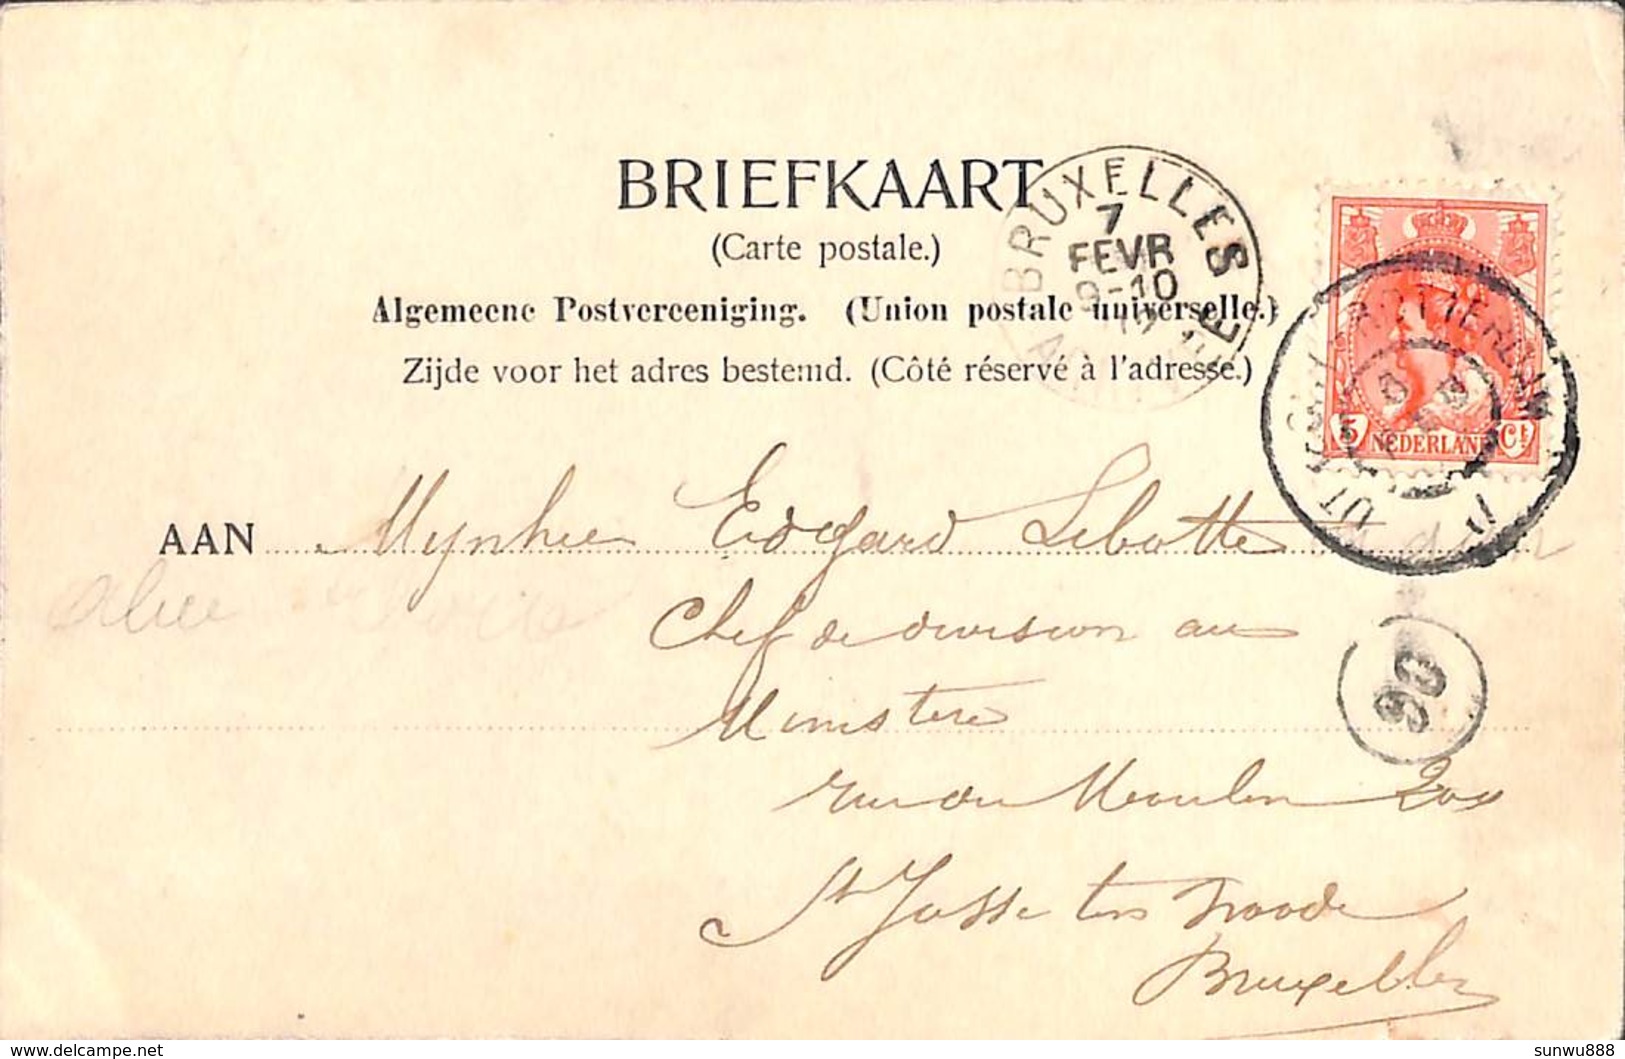 BRIEFKAART
(Carte postale.)
Algemeene Postvereeniging. (Union postale universelle.)
Zijde voor het adres bestemd. (Côté réservé à l'adresse.)
BRUXELLES
7
FEVR
9-10
5 NEDERLAND Ct
UTRECHT ROTTERDAM
AAN Mynheer Edgard Lebotte
Alice
Chef de division au
Ministère
rue du Moulin
St Josse ten Noode
Bruxelles
90
www.delcampe.net
sunwu888